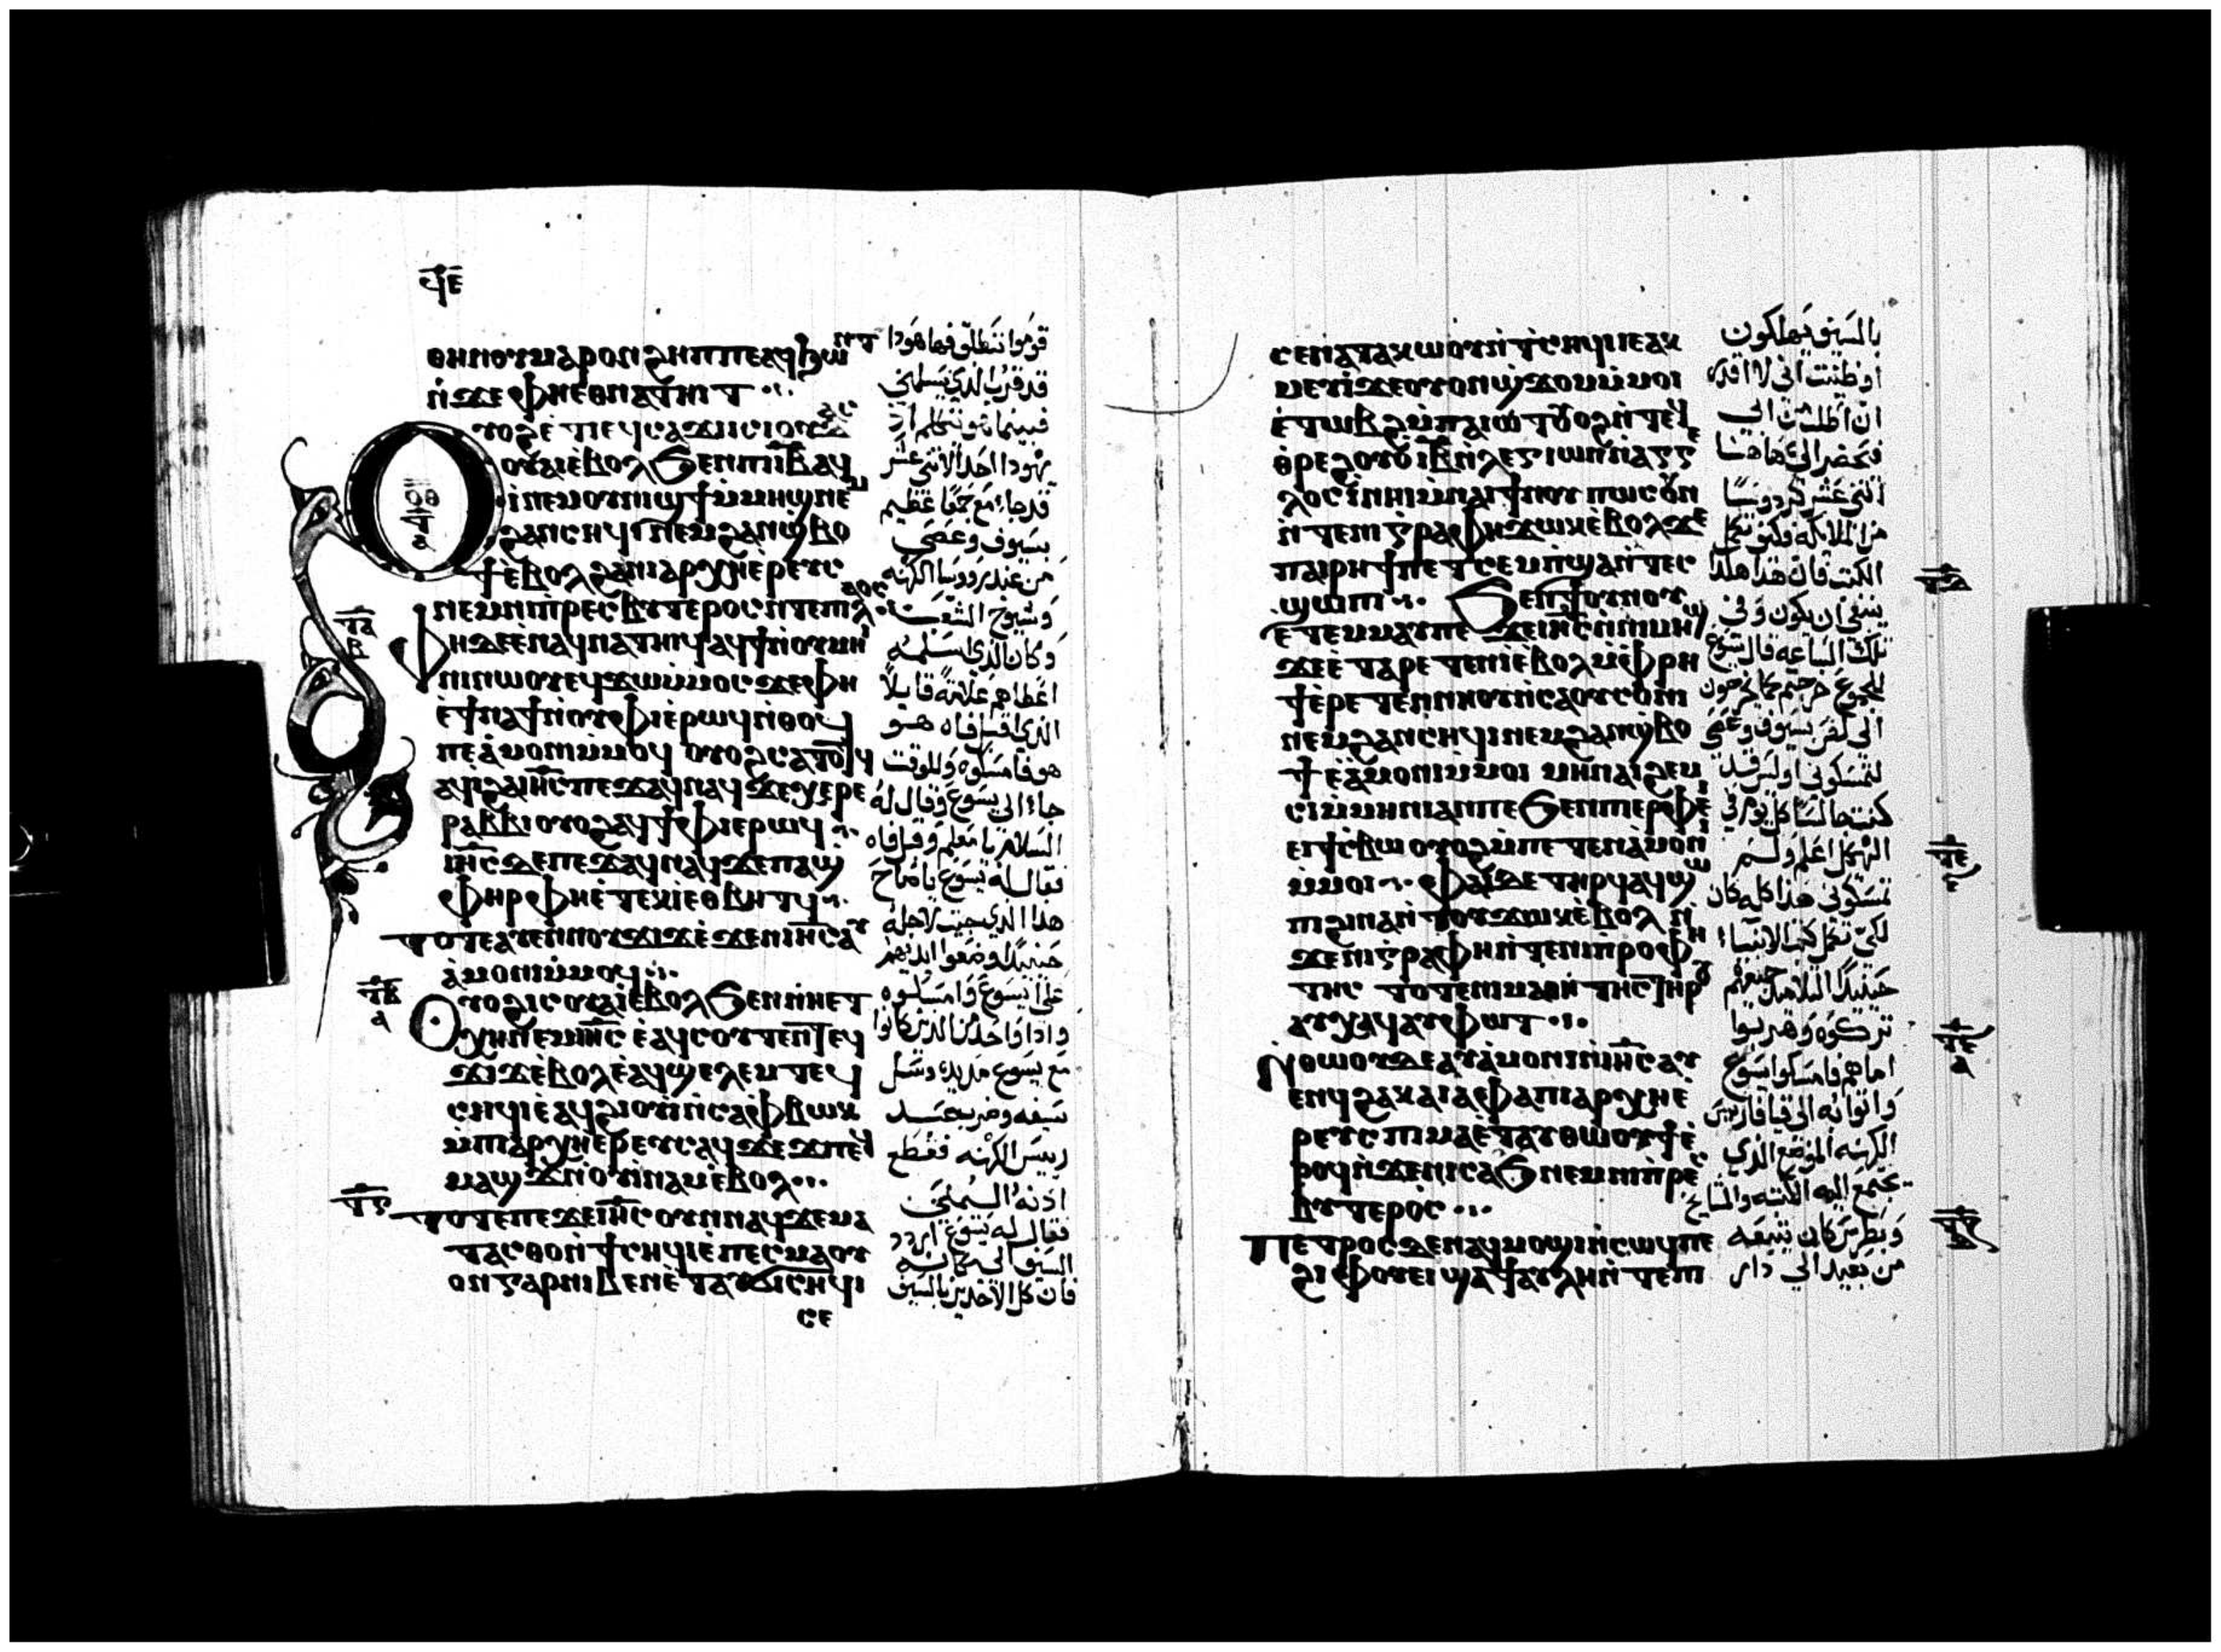 ϥⲉ
ⲑⲏⲛⲟⲩⲙⲁⲣⲟⲛϩⲏⲡⲡⲉⲁϥϧⲱⲛⲧ
ⲛ̇ϫⲉⲫⲏⲉⲑⲛⲁⲧⲏⲓⲧ
ⲟⲩⲟϩⲉⲧⲓⲉϥⲥⲁϫⲓⲓⲥⲓⲟⲩⲇⲁⲥ
ⲟⲩⲁⲓⲉⲃⲟⲗϧⲉⲛⲡⲓⲓ̅ⲃ̅ⲁϥ
ⲓ̀ⲛⲉⲙⲟⲩⲛⲓϣϯⲙ̇ⲙⲏϣⲛⲉⲙ
ϩⲁⲛⲥⲏϥⲓⲛⲉⲙϩⲁⲛϣ̇ⲃⲟ
ϯⲉⲃⲟⲗϩⲁⲛⲓⲁⲣⲭⲏⲉ̀ⲣⲉⲩⲥ
ⲛⲉⲙⲛⲓⲡ̇ⲣⲉⲥⲃⲩⲧⲉⲣⲟⲥⲛ̇ⲧⲉⲡⲓⲗⲁⲟⲥ
ⲫⲏⲇⲉⲉ̇ⲛⲁϥⲛⲁⲧⲏⲓϥⲁϥϯⲛ̇ⲟⲩⲙⲏ
ⲓⲛⲓⲛⲱⲟⲩⲉϥϫⲱⲙ̇ⲙⲟⲥϫⲉⲫⲏ
ⲉ̀ϯⲛⲁϯⲛ̇ⲟⲩⲫⲓⲉ̀ⲣⲱϥⲛ̇ⲑⲟϥ
ⲡⲉⲁ̀ⲙⲟⲛⲓⲙ̇ⲙⲟϥ ⲟⲩⲟϩⲥⲁⲧⲟⲧϥ
ⲁϥⲓ̀ϩⲁⲓⲏ̅ⲥ̅ⲡⲉϫⲁϥⲛⲁϥϫⲉⲭⲉⲣⲉ
ⲣⲁⲃⲃⲓⲟⲩⲟϩⲁϥϯⲫⲓⲉⲣⲱϥ
ⲓⲏ̅ⲥ̅ⲇⲉⲡⲉϫⲁϥⲛⲁϥϫⲉⲡⲁϣ̇
ⲫⲏⲣⲫⲏⲉ̀ⲧⲉⲕⲓ̀ⲉⲑⲃⲏⲧϥ
ⲧⲟⲧⲉⲁⲩⲉⲛⲛⲟⲩϫⲓϫⲉ̀ϫⲉⲛⲓⲏ̅ⲥ̅ⲁⲩ
ⲁ̀ⲙⲟⲛⲓⲙ̇ⲙⲟϥ
ⲟⲩⲟϩⲓⲥⲟⲩⲁⲓⲉ̀ⲃⲟⲗϧⲉⲛⲛⲏⲉⲧ
ⲭⲏⲛⲉⲙⲓⲏ̅ⲥ̅ ⲉ̀ⲁϥⲥⲟⲩⲧⲉⲛⲧⲉϥ
ϫⲓϫⲉ̀ⲃⲟⲗⲉ̀ⲁϥϣⲉⲗⲉⲙⲧⲉϥ
ⲥⲏϥⲓⲉ̀ⲁϥϩⲓⲟⲩⲓ̇ⲛ̇ⲥⲁⲫⲃⲱⲕ
ⲙ̇ⲡⲓⲁⲣⲭⲏⲉ̀ⲣⲉⲩⲥⲁϥϫⲉϫⲡⲉϥ
ⲙⲁϣϫⲛ̇ⲟⲩⲓⲛⲁⲙⲉ̀ⲃⲟⲗ
ⲧⲟⲧⲉⲡⲉϫⲉⲓⲏ̅ⲥ̅ⲟⲩⲛⲛⲁϥϫⲉⲙⲁ
ⲧⲁⲥⲑⲟⲛ̇ⲧⲥⲏϥⲓⲉ̀ⲡⲉⲥⲙⲁⲟⲩ
ⲟⲛⲅⲁⲣⲛⲓⲃⲉⲛⲉ̀ⲧⲁⲩϭⲓⲥⲏϥⲓ
ⲥⲉ
ⲧ̅ⲁ̅
ⲃ
ⲧ̅ⲃ̅
ⲁ
ⲧ̅ⲅ̅
قوموا ننطلق فها هوذا
قد قرب الذي يسلمني
فبينما هو يتكلم اذ
يهودا احد الاثني عشر
قد جاء مع جمعا عظيم
بسيوف وعصي
من عند رووسا الكهنه
وشيوخ الشعب
وكان الذي اسلمه
اعطاهم علامة قايلا
الذي اقبل فاه هو
هو فامسكوه وللوقت
جاء الي يسوع وقال له
السلام يا معلم وقبل فاه
فقال له يسوع يا صاح
هذا الذي جيت لاجله
حينيذ وضعوا ايديهم
علي يسوع وامسكوه
واذا واحد من الذين كانوا
مع يسوع مد يده وسل
سيفه وضرب عبد
رييس الكهنه فقطع
اذنه اليمني
فقال له يسوع اردد
السيف الي مكانه
فان كل الاخذين بالسيف
ⲥⲉⲛⲁⲧⲁⲕⲱⲟⲩⲛ̇ⲧⲥⲏϥⲓⲓⲉⲁⲕ
ⲙⲉⲩⲓ̀ϫⲉⲟⲩⲟⲛϣ̇ϫⲟⲙⲙ̇ⲙⲟⲓ
ⲉ̀ⲧⲱⲃϩⲙ̇ⲡⲁⲓⲱⲧⲟⲩⲟϩⲛ̇ⲧⲉϥ
ⲑ̇ⲣⲉϩⲟⲩⲟ̀ⲓ̅ⲃ̅ⲛ̇ⲗⲉⲅⲓⲱⲛⲛ̇ⲁⲅⲅⲉ
ⲗⲟⲥⲓ̀ⲛⲏⲓⲙ̇ⲛⲁⲓϯⲛⲟⲩ ⲡⲱⲥⲟⲩⲛ
ⲛ̇ⲧⲉⲛⲓⲅⲣⲁⲫⲏϫⲱⲕⲉ̀ⲃⲟⲗϫⲉ
ⲡⲁⲓⲣⲏϯⲡⲉⲧⲥⲉⲙⲡ̇ϣⲁⲛ̇ⲧⲉⲥ
ϣⲱⲡⲓ ϧⲉⲛϯⲟⲩⲛⲟⲩ
ⲉⲧⲉⲙⲙⲁⲩⲡⲉϫⲉⲓⲏ̅ⲥ̅ⲛ̇ⲛⲓⲙⲏϣ
ϫⲉⲉ̀ⲧⲁⲣⲉⲧⲉⲛⲓ̀ⲉ̀ⲃⲟⲗⲙ̇ⲫⲣⲏ
ϯⲉ̀ⲣⲉⲧⲉⲛⲛⲏⲟⲩⲛ̇ⲥⲁⲟⲩⲥⲟⲛⲓ
ⲛⲉⲙϩⲁⲛⲥⲏϥⲓⲛⲉⲙϩⲁⲛϣ̇ⲃⲟ
ϯⲉ̀ⲁ̀ⲙⲟⲛⲓⲙ̇ⲙⲟⲓ ⲙⲏⲛⲁⲓϩⲉⲙ
ⲥⲓⲙ̇ⲙⲏⲛⲓⲁⲛⲡⲉϧⲉⲛⲡⲓⲉⲣⲫⲉⲓ
ⲉⲓϯⲥⲃⲱⲟⲩⲟϩⲙ̇ⲡⲉⲧⲉⲛⲁ̀ⲙⲟⲛⲓ
ⲙ̇ⲙⲟⲓ ⲫⲁⲓⲇⲉⲧⲏⲣϥⲁϥϣⲱ
ⲡⲓϩⲓⲛⲁⲛ̇ⲧⲟⲩϫⲱⲕⲉ̀ⲃⲟⲗⲛ̇
ϫⲉⲛⲓⲅⲣⲁⲫⲏⲛ̇ⲧⲉⲛⲓⲡⲣⲟⲫⲏ
ⲧⲏⲥ ⲧⲟⲧⲉⲛⲓⲙⲁⲑⲏⲧⲏⲥⲧⲏⲣⲟⲩ
ⲁⲩⲭⲁϥⲁⲩⲫⲱⲧ
ⲛ̇ⲑⲱⲟⲩⲇⲉⲁⲩⲁ̀ⲙⲟⲛⲓⲛ̇ⲓⲏ̅ⲥ̅ⲁⲩ
ⲉⲛϥϩⲁⲕⲁⲓⲁⲫⲁⲡⲓⲁⲣⲭⲏⲉ̀
ⲣⲉⲩⲥⲡⲓⲙⲁⲉ̀ⲧⲁⲩⲑⲱⲟⲩϯⲉ̀
ⲣⲟϥⲛ̇ϫⲉⲛⲓⲥⲁϧⲛⲉⲙⲛⲓⲡ̇ⲣⲉⲥ
ⲃⲩⲧⲉⲣⲟⲥ
ⲡⲉⲧⲣⲟⲥⲇⲉⲛⲁϥⲙⲟϣⲓⲛ̇ⲥⲱϥⲡⲉ
ϩⲓⲫⲟⲩⲉⲓϣⲁϯⲁⲩⲗⲏⲛ̇ⲧⲉⲡⲓ
بالسيف يهلكون
او ظننت اني لا اقدر
ان اطلب الي ابي
فيحضر الي هاهنا
اثني عشر كردوسا
من الملايكه فكيف تكمل
الكتب فان هذا هكذا
ينبغي ان يكون وفي
تلك الساعه قال يسوع
للجموع خرجتم كما يخرجون
الي لص بسيوف وعصي
لتمسكوني اوليس قد
كنت جالسا كل يوم في
الهيكل اعلم ولم
تمسكوني هذا كله كان
لكي تكمل كتب الانبياء
حينيذ التلاميذ جميعهم
تركوه وهربوا
اما هم فامسكوا يسوع
واتوا به الي قيافا رييس
الكهنه الموضع الذي
يجتمع اليه الكتبه والمشايخ
وبطرس كان يتبعه
من بعيد الي دار
ⲧ̅ⲇ̅
ⲧ̅ⲉ̅